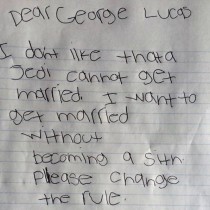 Dear George Lucas
I dont like that a
Jedi cannot get
married. I want to
get married
without
becoming a sith.
Please change
the rule.